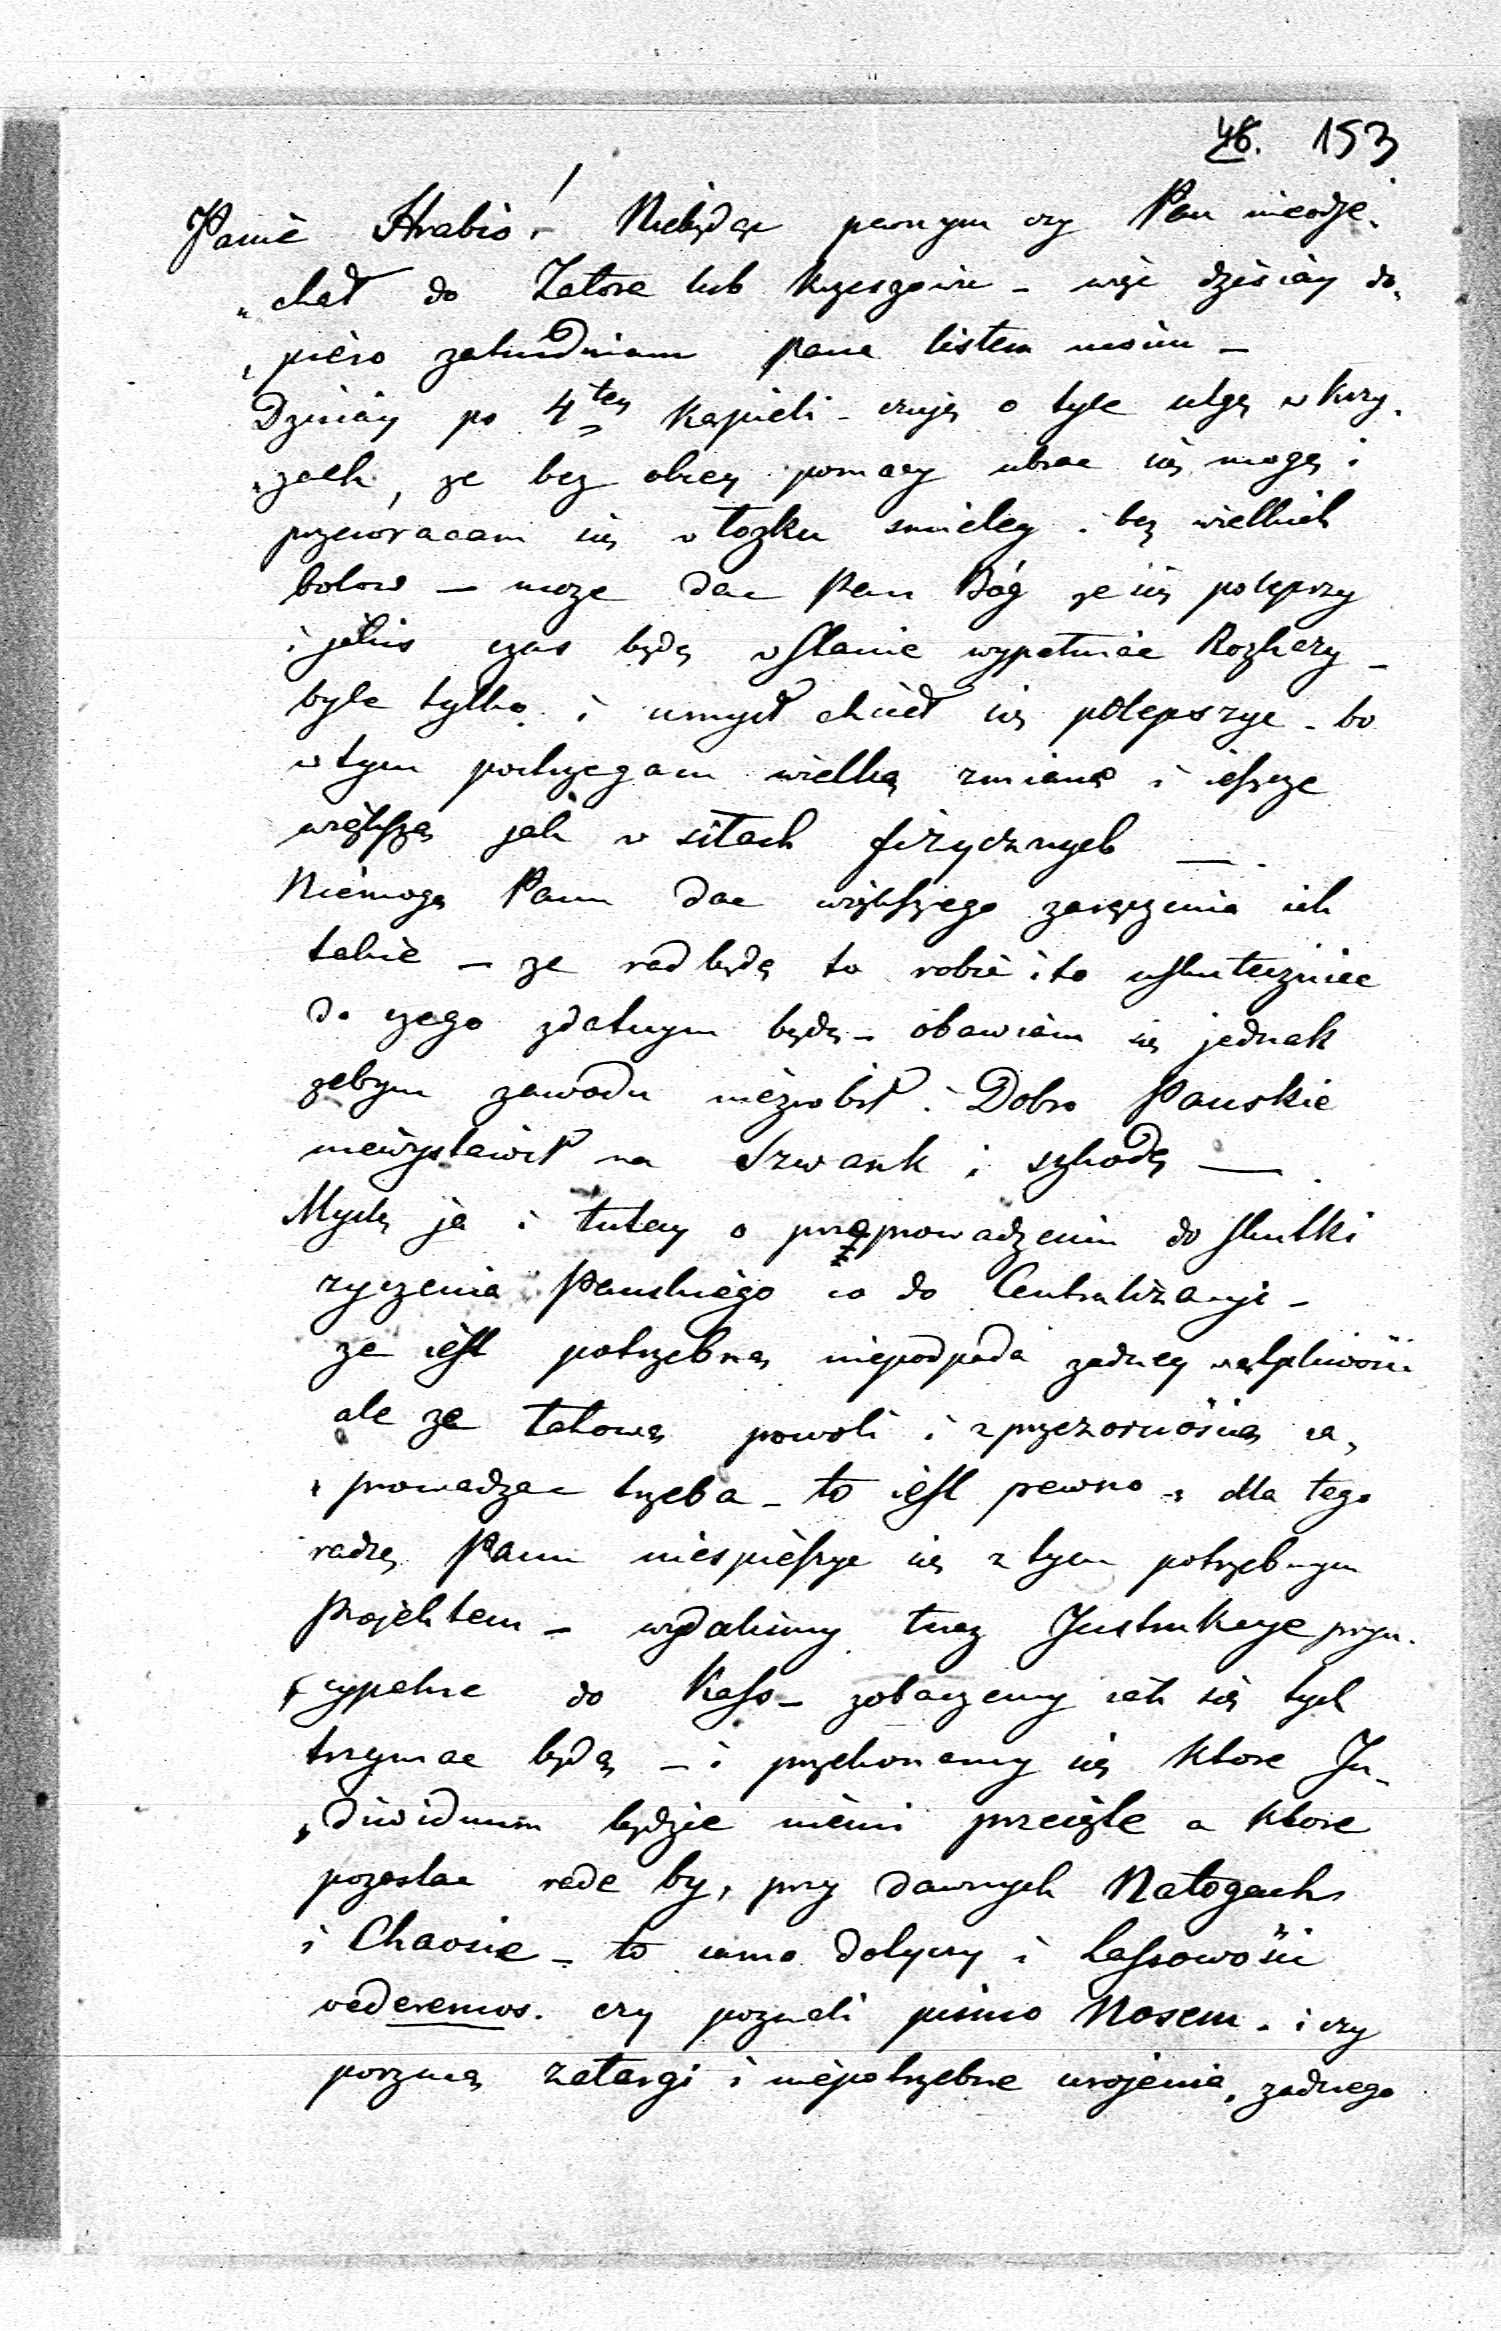 48. 153
Panie Hrabio! Niebędąc pewnym czy Pan nieodje„
„chał do Zatora lub Krzeszowic – więc dzisiay do„
„piero zatrudniam Pana listem moim –
Dzisiay po 4tey Kąpieli – czuję o tyle ulgę w krzy„
„zach, ze bez obcey pomocy ubrac się mogę i
przewracam się w łozku smieley i bez wielkich
bolow – moze da Pan Bóg ze się polepszy
i jakis czas będę w stanie wypełniac Rozkazy –
byle tylko i umysł chciał się polepszyc – bo
w tym postrzegam wielką zmianę i ieszcze
większą jak w siłach fizycznych —
Niemogę Panu dac większego zaręczenia jak
takie – ze rad będę to robic i to uskuteczniac
do czego zdatnym będę – obawiam się jednak
zebym zawodu niezrobił i Dobro Pańskie
niewystawił na Szwank i szkodę —
Myslę ja i tutay o przeprowadzeniu do skutku
zyczenia Pańskiego co do Centralizacyi –
ze iest potrzebną niepodpada zadney wątpliwości
ale ze takową powoli i z przezornością za„
„prowadzac trzeba – to iest pewno – dla tego
radzę Panu niespieszyc się z tym potrzebnym
Projektem – wydalismy teraz Instrukcye pryn„
„cypalne do Kass – zobaczemy jak się tych
trzymac będą – i przekonamy się ktore In„
„dividuum będzie niemi przeięte a ktore
pozostac rade by, przy dawnych Nałogach
i Chaosie – to samo dotyczy i Lassowości
vederemos. czy poznali pismo Nosem – i czy
porzucą zatargi i niepotrzebne urojenia, zadnego